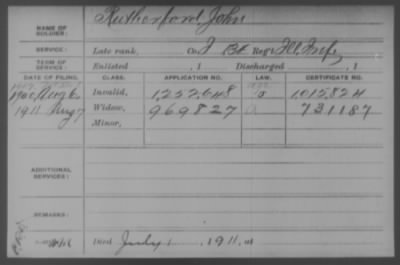 NAME OF SOLDIER: Rutherford, John
SERVICE: Late rank, Co. I Reg't Ill. Inf.
TERM OF SERVICE: Enlisted , 1 Discharged , 1
DATE OF FILING. CLASS. APPLICATION NO. LAW. CERTIFICATE NO.
1900 Aug 6 Invalid, 1,252,648 1,012,824
1911 Aug 7 Widow, 969827 731187
Minor,
ADDITIONAL SERVICES:
REMARKS:
Died July 1911,